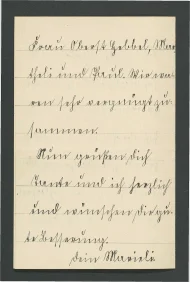 Frau Oberst Hebbel, Mar
theli und Paul. Wir wa
ren sehr vergnügt zu
sammen.
Nun grüßen dich
Tante und ich herzlich
und wünschen dir gu
te Besserung.
Dein Marieli